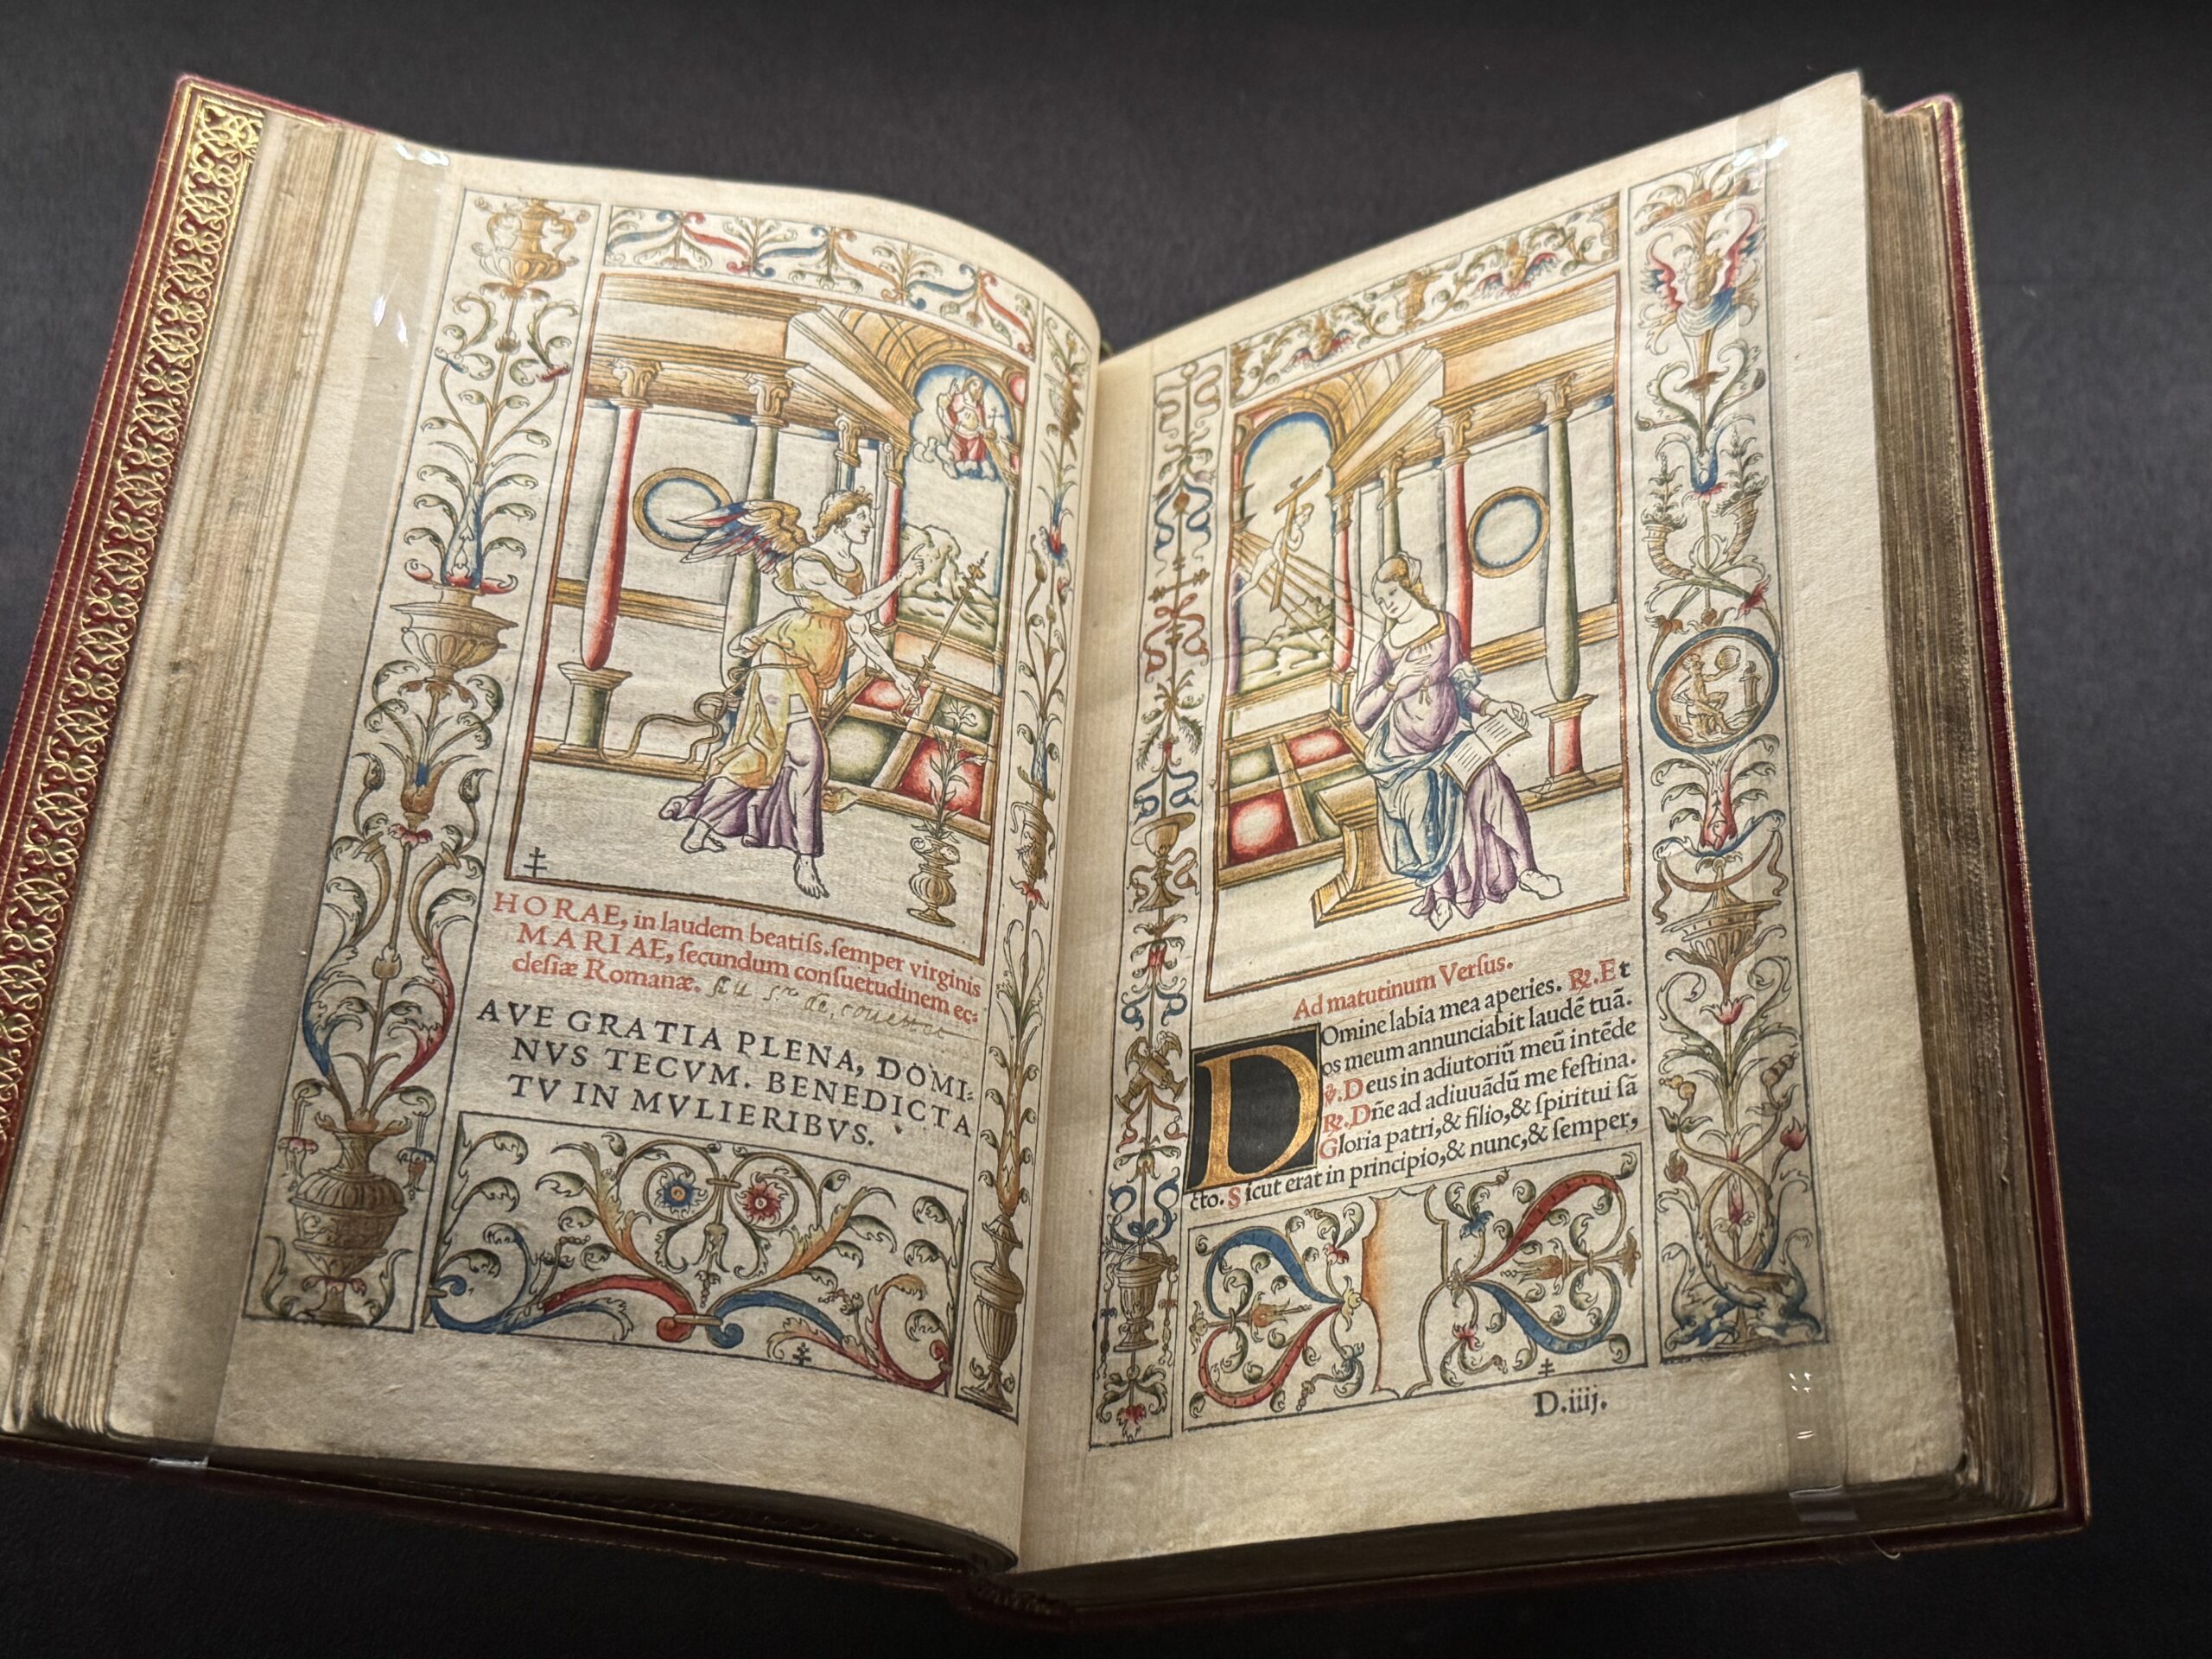 HORAE, in laudem beatiſs. ſemper virginis
MARIAE, ſecundum conſuetudinem ec:
cleſiæ Romanæ.
AVE GRATIA PLENA, DOMI:
NVS TECVM. BENEDICTA
TV IN MVLIERIBVS.
Ad matutinum Verſus.
DOmine labia mea aperies. ℟. Et
os meum annunciabit laudē tuā.
℣. Deus in adiutoriū meū intēde
℟. Dñe ad adiuuādū me feſtina.
Gloria patri, & filio, & ſpiritui ſā
cto. Sicut erat in principio, & nunc, & ſemper,
D.iiij.